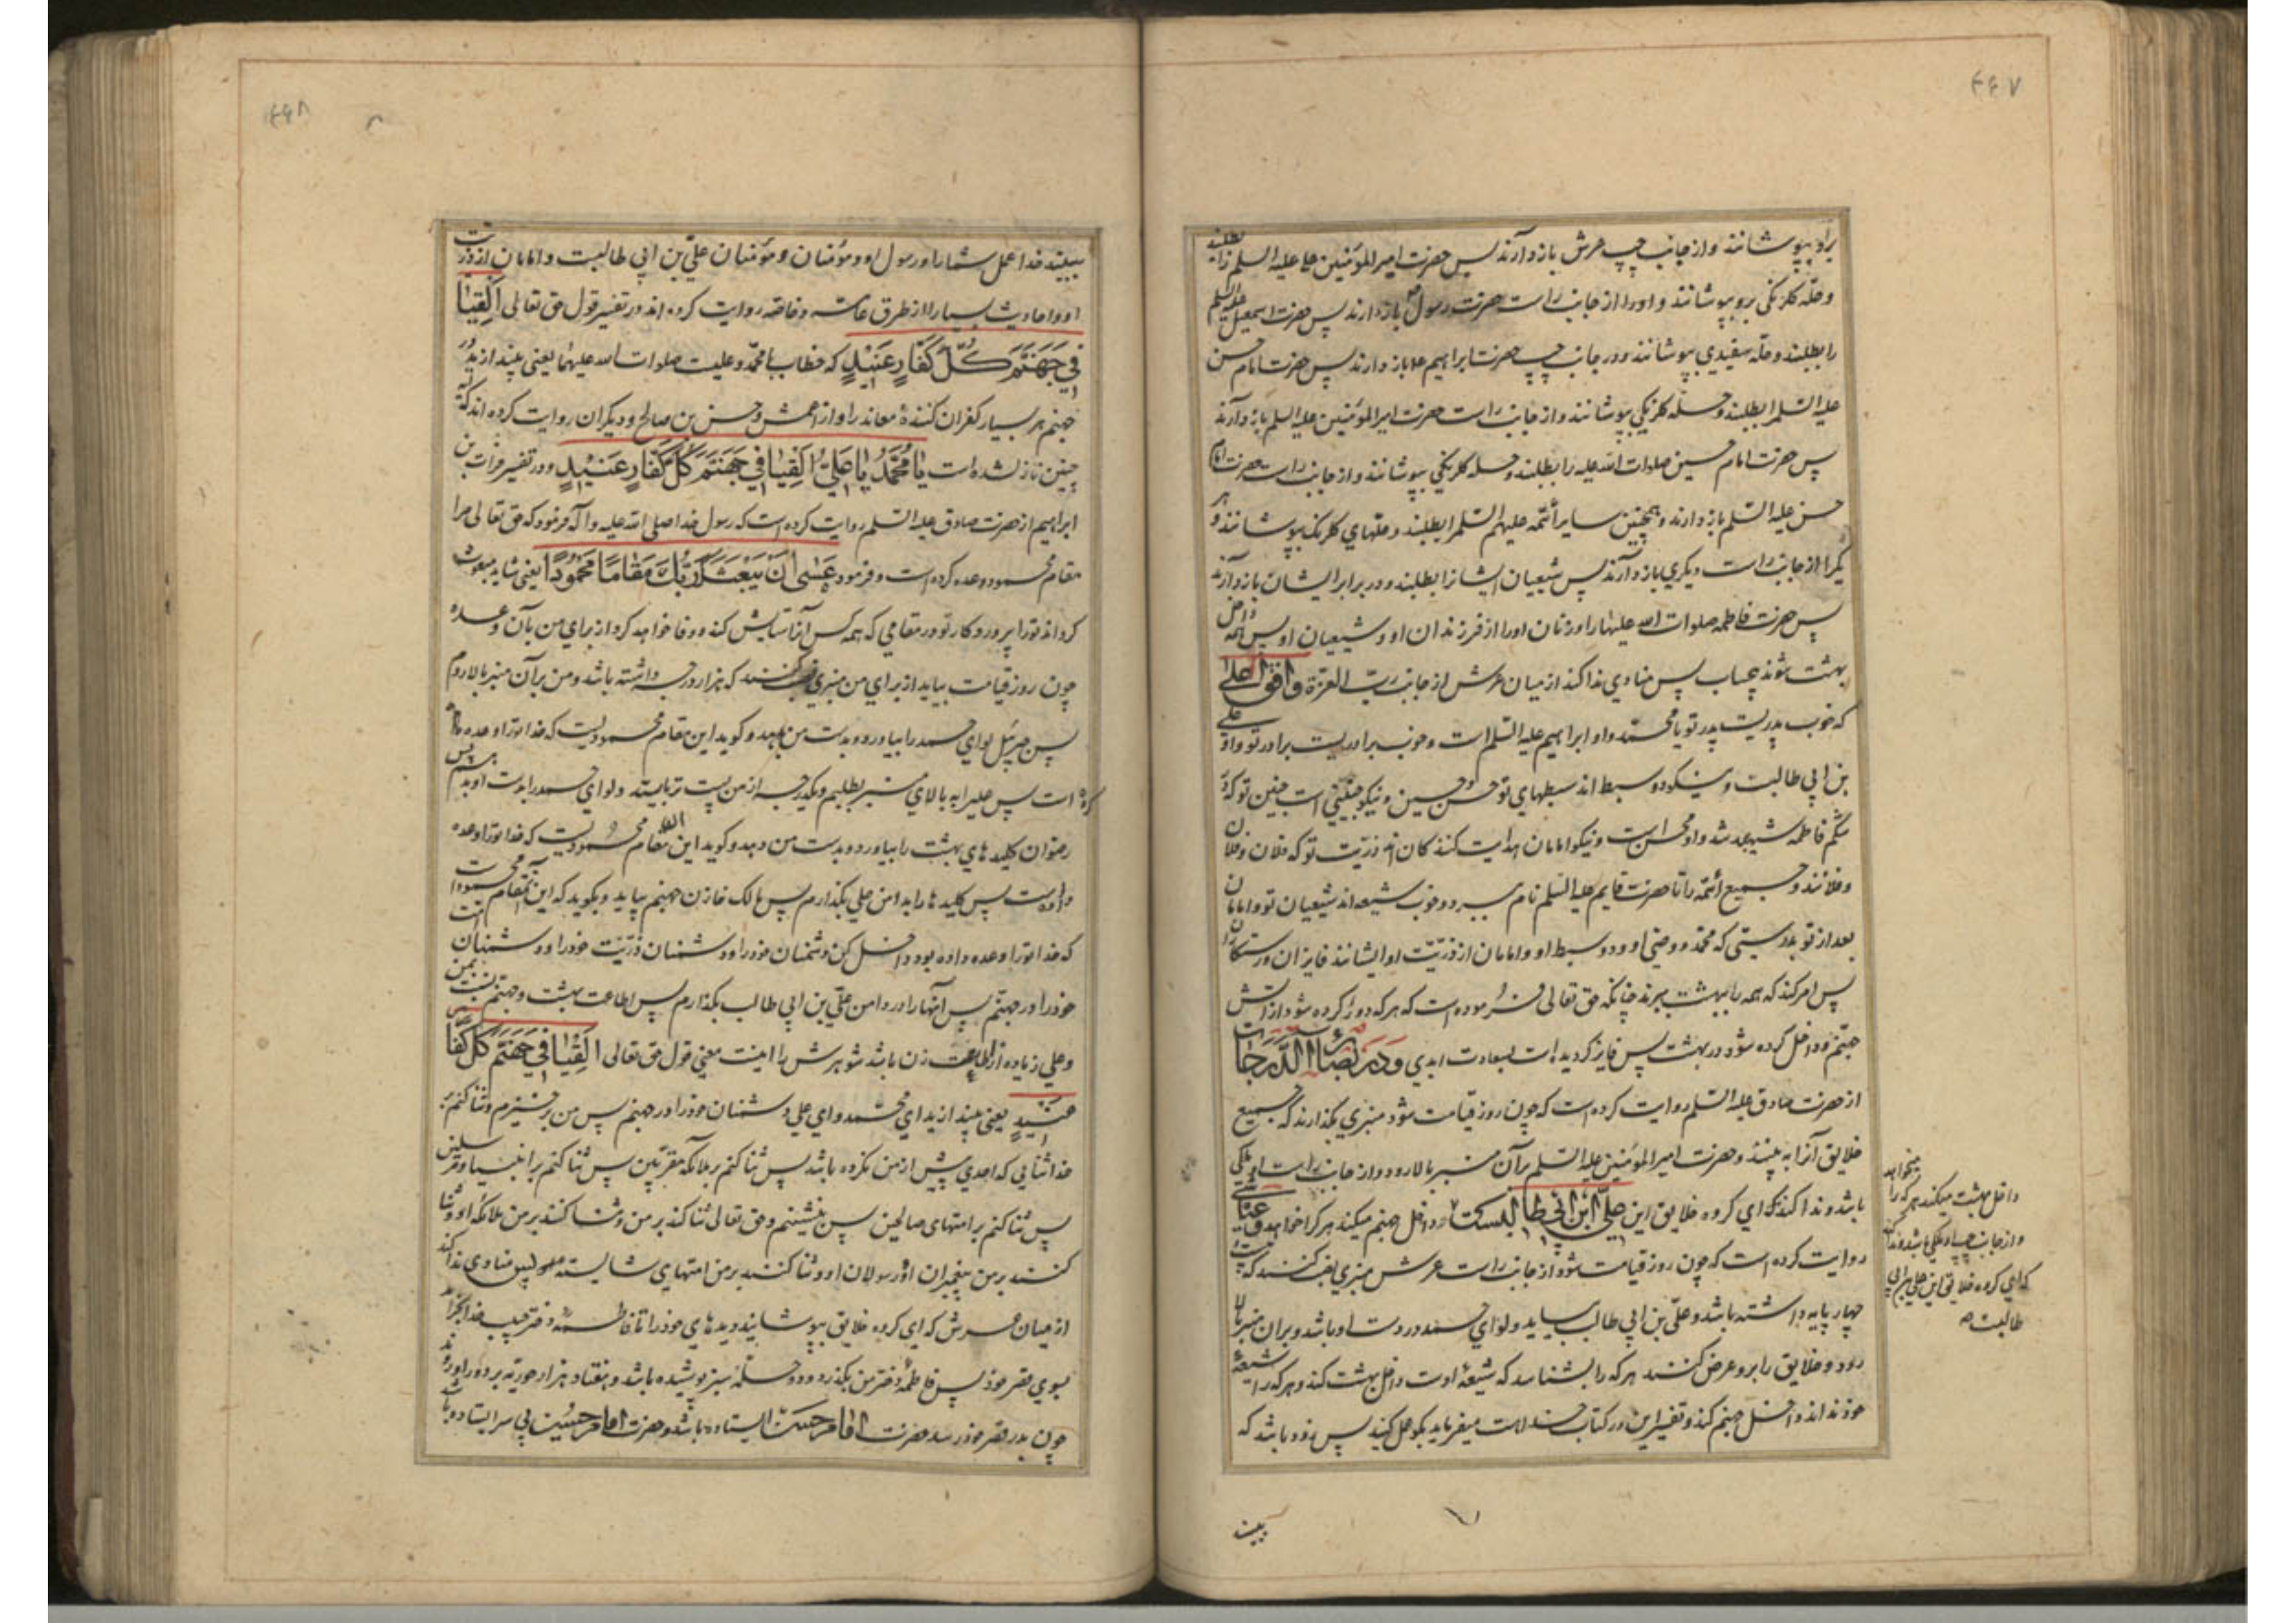 ۴۴۷
براو بپوشانند و از جانب چپ عرش بازدارند پس حضرت امیر المؤمنین علی علیه السلم را بطلبند
و حلّه گلرنگی برو بپوشانند و او را از جانب راست حضرت رسول بازدارند پس حضرت اسمعیل علیه السلم
را بطلبند و حلّه سفیدی بپوشانند و در جانب چپ حضرت ابراهیم بازدارند پس حضرت امام حسن
علیه السلم را بطلبند و حلّه گلرنگی بپوشانند و از جانب راست حضرت امیر المؤمنین علیه السلم بازدارند
پس حضرت امام حسین صلوات الله علیه را بطلبند و حله گلرنگی بپوشانند و از جانب راست حضرت امام
حسن علیه السلم بازدارند و همچنین سایر ائمّه علیهم السلم را بطلبند و حلّهای گلرنگ بپوشانند و هر
یک را از جانب راست دیگری بازدارند پس شیعیان ایشانرا بطلبند و در برابر ایشان بازدارند
پس حضرت فاطمه صلوات الله علیها را و زنان او را از فرزندان او و شیعیان او پس همه داخل
بهشت شوند بیحساب پس منادی ندا کند از میان عرش از جانب ربّ العزة و افق اعلی
که خوب پدریست پدر تو یا محمّد و او ابراهیم علیه السلم است و خوب برادریست برادر تو و او علی
بن ابی طالبست و نیکو دو سبط اند سبطهای تو حسن و حسین و نیکو جنینی است جنین تو که در
شکم فاطمه شهید شد و او محسن است و نیکو امامان هدایت کنندگان اند ذریّت تو که فلان و فلان
و فلانند و جمیع ائمّه را تا حضرت قایم علیه السلم نام میبرد و خوب شیعه اند شیعیان تو و امامان
بعد از تو بدرستی که محمّد و وصی او و دو سبط او و امامان از ذریّت او ایشانند فایزان و رستگاران
پس امر کند که همه را ببهشت برند چنانکه حق تعالی فرموده است که هر که دور کرده شود از آتش
جهنّم و داخل کرده شود در بهشت پس فایز گردیده است بسعادت ابدی و در بصائر الدرجات
از حضرت صادق علیه السلم روایت کرده است که چون روز قیامت شود منبری بگذارند که جمیع
خلایق آنرا به بینند و حضرت امیر المؤمنین علیه السلم بر آن منبر بالا رود و از جانب راست او ملکی
باشد و ندا کند که ای گروه خلایق این علی ابن ابی طالبست داخل جهنم میکند هر که را خواهد و عیاشی
روایت کرده است که چون روز قیامت شود از جانب راست عرش منبری نصب کنند که بیست
چهار پایه داشته باشد و علی بن ابی طالب بیاید و لوای حمد در دست او باشد و بران منبر بالا
رود و خلایق را برو عرض کنند هر که را بشناسد که شیعهٔ اوست داخل بهشت کند و هر که را شیعهٔ
خود نداند داخل جهنم کند و تفسیر این در کتاب خداست میفرماید بگو عمل کنید پس زود باشد که
بیند
میخواهد
داخل بهشت میکند هر که را
و از جانب چپ او ملکی باشد و ندا کند
که ای گروه خلایق این علی بن ابی
طالبست
۴۴۸
ببیند خدا عمل شما را و رسول او و مؤمنان و مؤمنان علی بن ابی طالبست و امامان از ذریت
او و احادیث بسیار از طرق عامه و خاصه روایت کرده اند در تفسیر قول حق تعالی اَلْقِیَا
فِي جَهَنَّمَ كُلَّ كَفَّارٍ عَنِيدٍ که خطاب با محمّد و علیست صلوات الله علیهما یعنی بیندازید در
جهنم هر بسیار کفران کنندهٔ معاند را و از اعمش و حسن بن صالح و دیگران روایت کرده اند که آیه
چنین نازل شده است یا مُحَمَّدُ یا عَلِیُّ اَلْقِیَا فِي جَهَنَّمَ كُلَّ كَفَّارٍ عَنِيدٍ و در تفسیر فرات بن
ابراهیم از حضرت صادق علیه السلم روایت کرده است که رسول خدا صلی الله علیه و آله فرمود که حق تعالی مرا
مقام محمود وعده کرده است و فرمود عَسَی اَنْ یَبْعَثَکَ رَبُّکَ مَقَامًا مَحْمُودًا یعنی شاید مبعوث
گرداند تو را پروردگار تو در مقامی که همه کس آنرا ستایش کنند و وفا خواهد کرد از برای من بآن وعده
چون روز قیامت بیاید از برای من منبری نصب کنند که هزار درجه داشته باشد و من بر آن منبر بالا روم
پس جبرئیل لوای حمد را بیاورد و بدست من بدهد و گوید این مقام محمودیست که خدا تو را وعده
کرده است پس علی را به بالای منبر بطلبم و یکدرجه از من پست تر بایستد و لوای حمد را بدست او بدهم پس
رضوان کلیدهای بهشت را بیاورد و بدست من دهد و گوید این مقام محمودیست که خدا تو را وعده
داده است پس کلیدها را بدامن علی بگذارم پس مالک خازن جهنم بیاید و بگوید که این مقام محمود است
که خدا تو را وعده داده بود داخل کن دشمنان خود را و دشمنان ذریّت خود را و دشمنان امت
خود را در جهنّم پس آنها را در دامن علی بن ابی طالب بگذارم پس اطاعت بهشت و جهنم نسبت بمن
و علی زیاده از اطاعت زن باشد شوهرش را اینست معنی قول حق تعالی اَلْقِیَا فِي جَهَنَّمَ كُلَّ كَفَّا
عَنِیدٍ یعنی بیندازید ای محمّد و ای علی دشمنان خود را در جهنم پس من برخیزم و ثنا کنم بر
خدا ثنایی که احدی پیش از من نکرده باشد پس ثنا کنم بر ملائکه مقربین پس ثنا کنم بر انبیا و مرسلین
پس ثنا کنم بر امتهای صالحین پس بنشینم و حق تعالی ثنا کند بر من و ثنا کنند بر من ملائکه او و ثنا
کنند بر من پیغمبران او و رسولان او و ثنا کنند بر من امتهای شایسته پس منادی ندا کند
از میان عرش که ای گروه خلایق بپوشانید دیدهای خود را تا فاطمه دختر حبیب خدا بگذرد
بسوی قصر خود پس فاطمه دختر من بگذرد و دو حلّهٔ سبز پوشیده باشد و هفتاد هزار حوریه بر دور او روند
چون بدر قصر خود رسد حضرت امام حسن ایستاده باشد و حضرت امام حسین بی سر ایستاده باشد